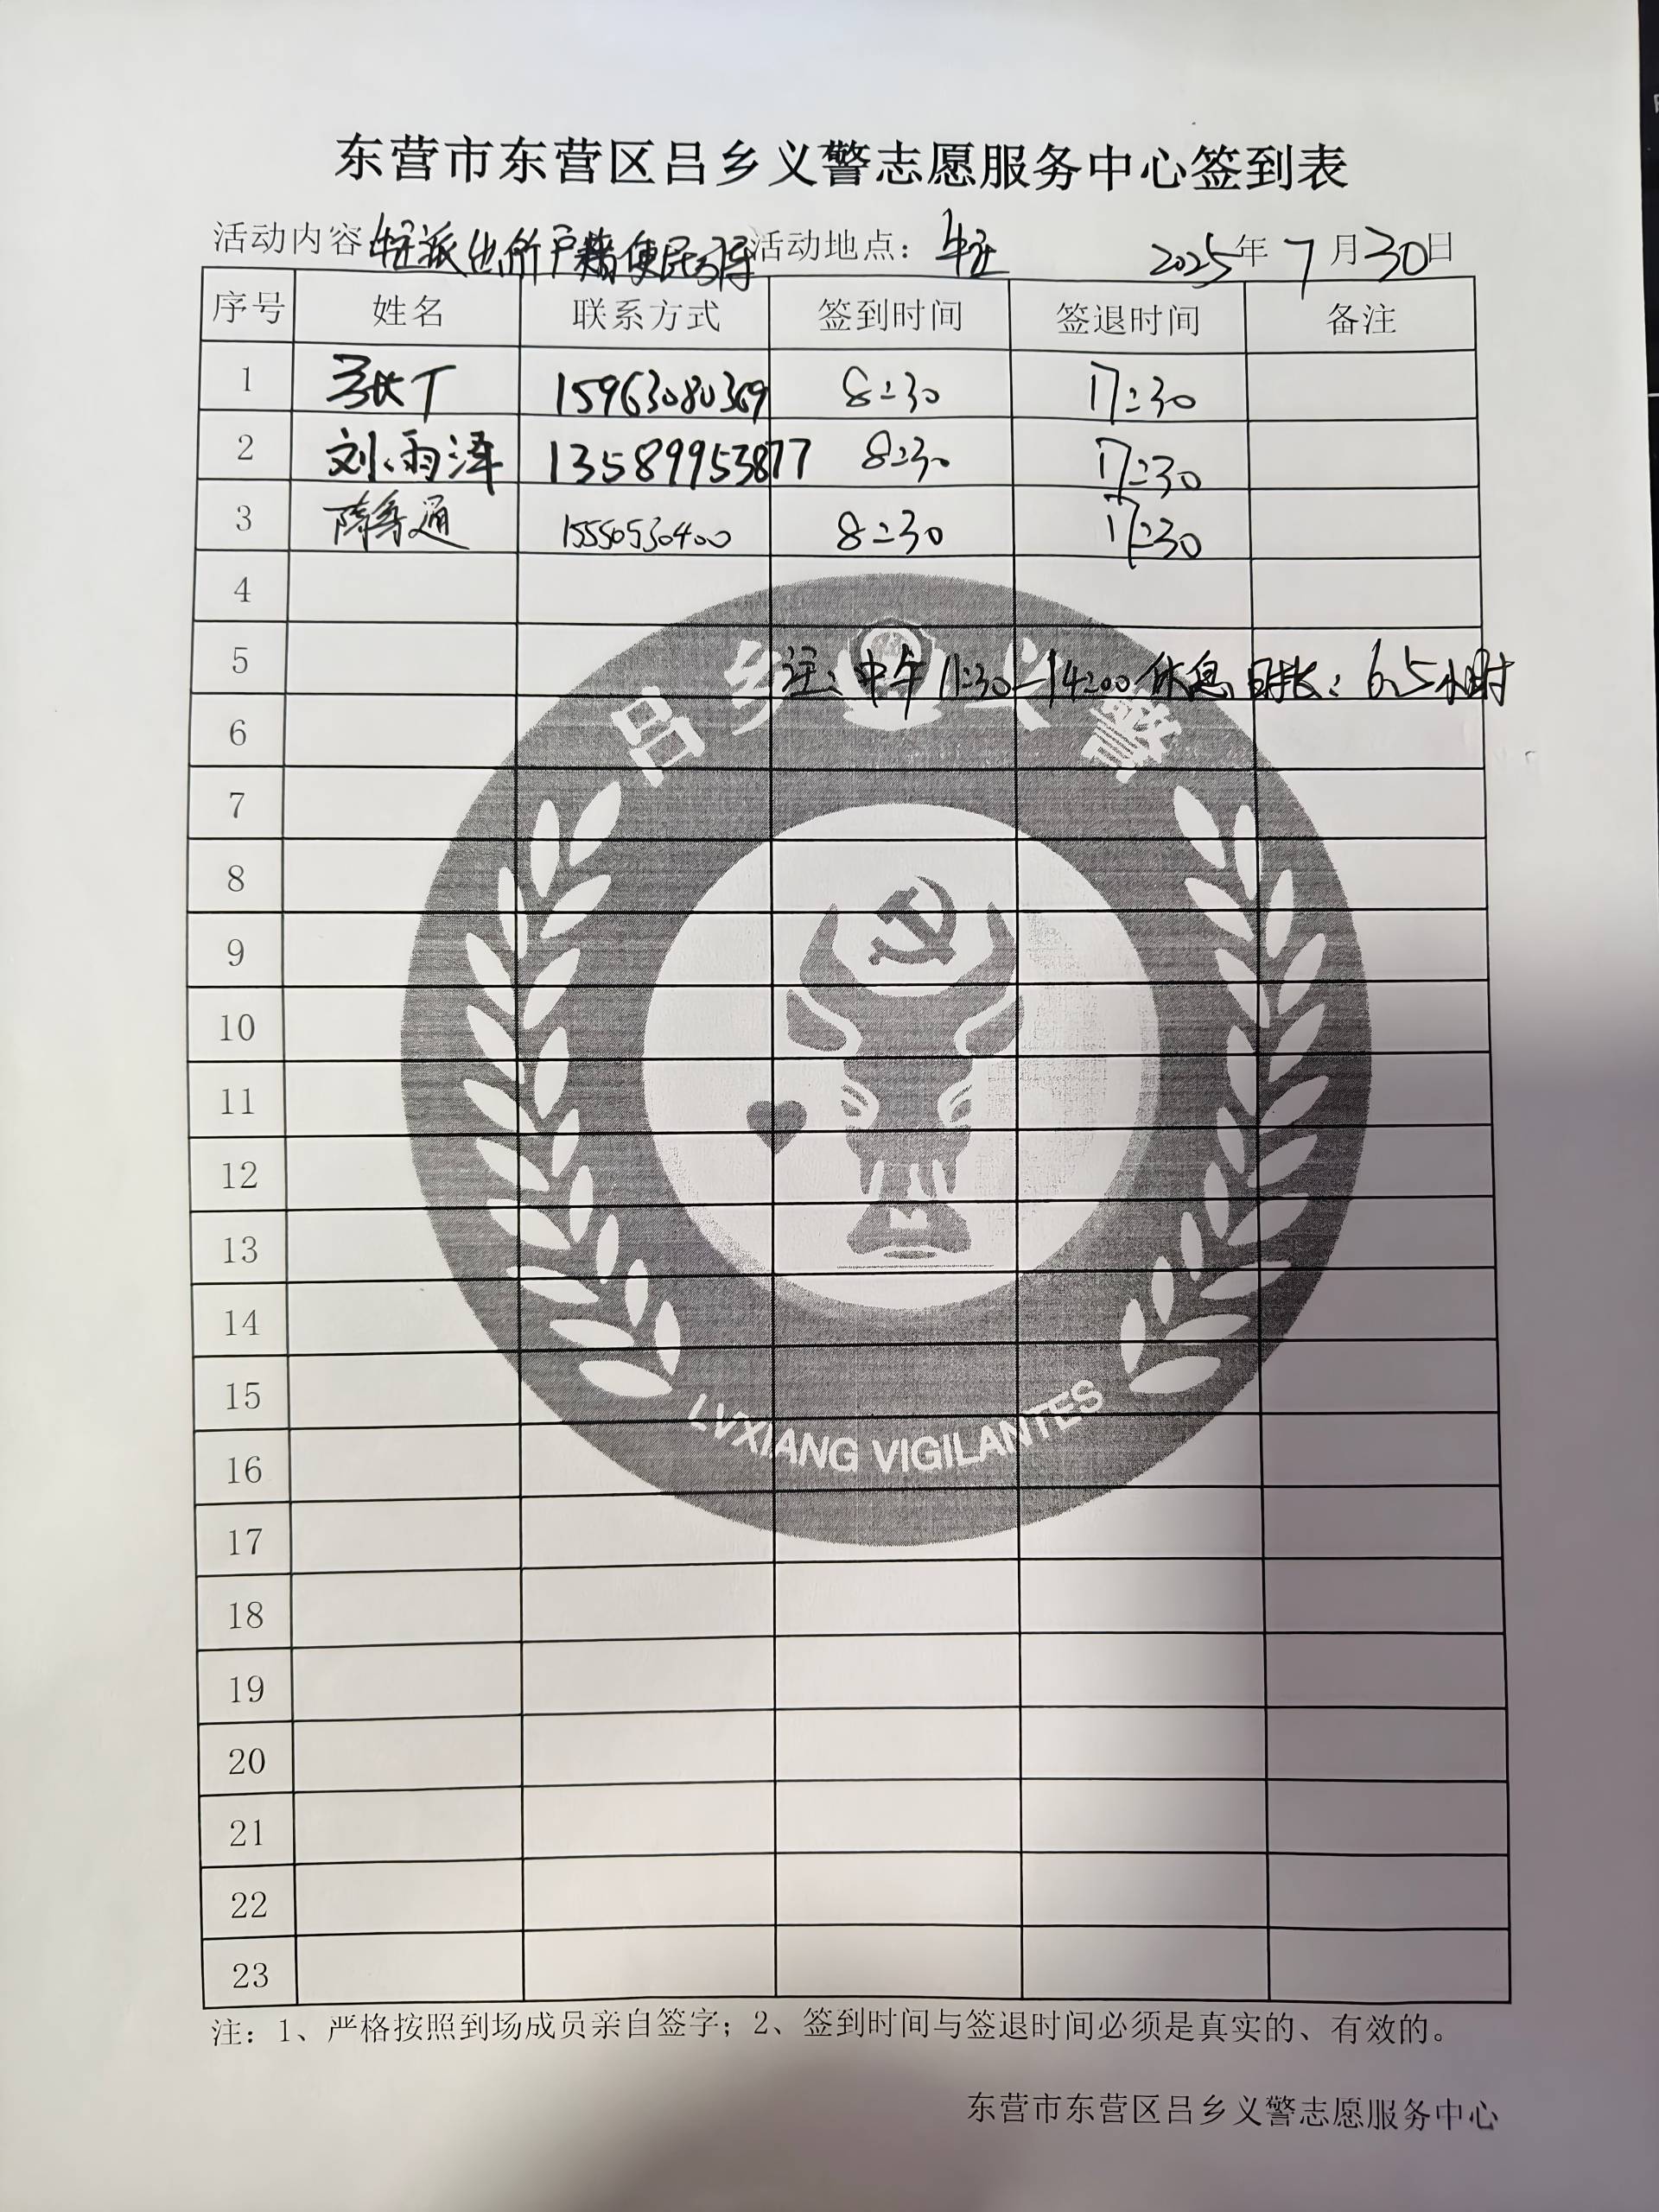 东营市东营区吕乡义警志愿服务中心签到表
活动内容 牛庄派出所户籍便民服务 活动地点：牛庄 2025年7月30日
序号 姓名 联系方式 签到时间 签退时间 备注
1 15963080369 8:30 17:30
2 刘雨泽 13589953877 8:30 17:30
3 15550530400 8:30 17:30
4
5 注：中午11:30-14:00休息 时长：6.5小时
6
7
8
9
10
11
12
13
14
15
16
17
18
19
20
21
22
23
吕乡义警
LVXIANG VIGILANTES
注：1、严格按照到场成员亲自签字；2、签到时间与签退时间必须是真实的、有效的。
东营市东营区吕乡义警志愿服务中心